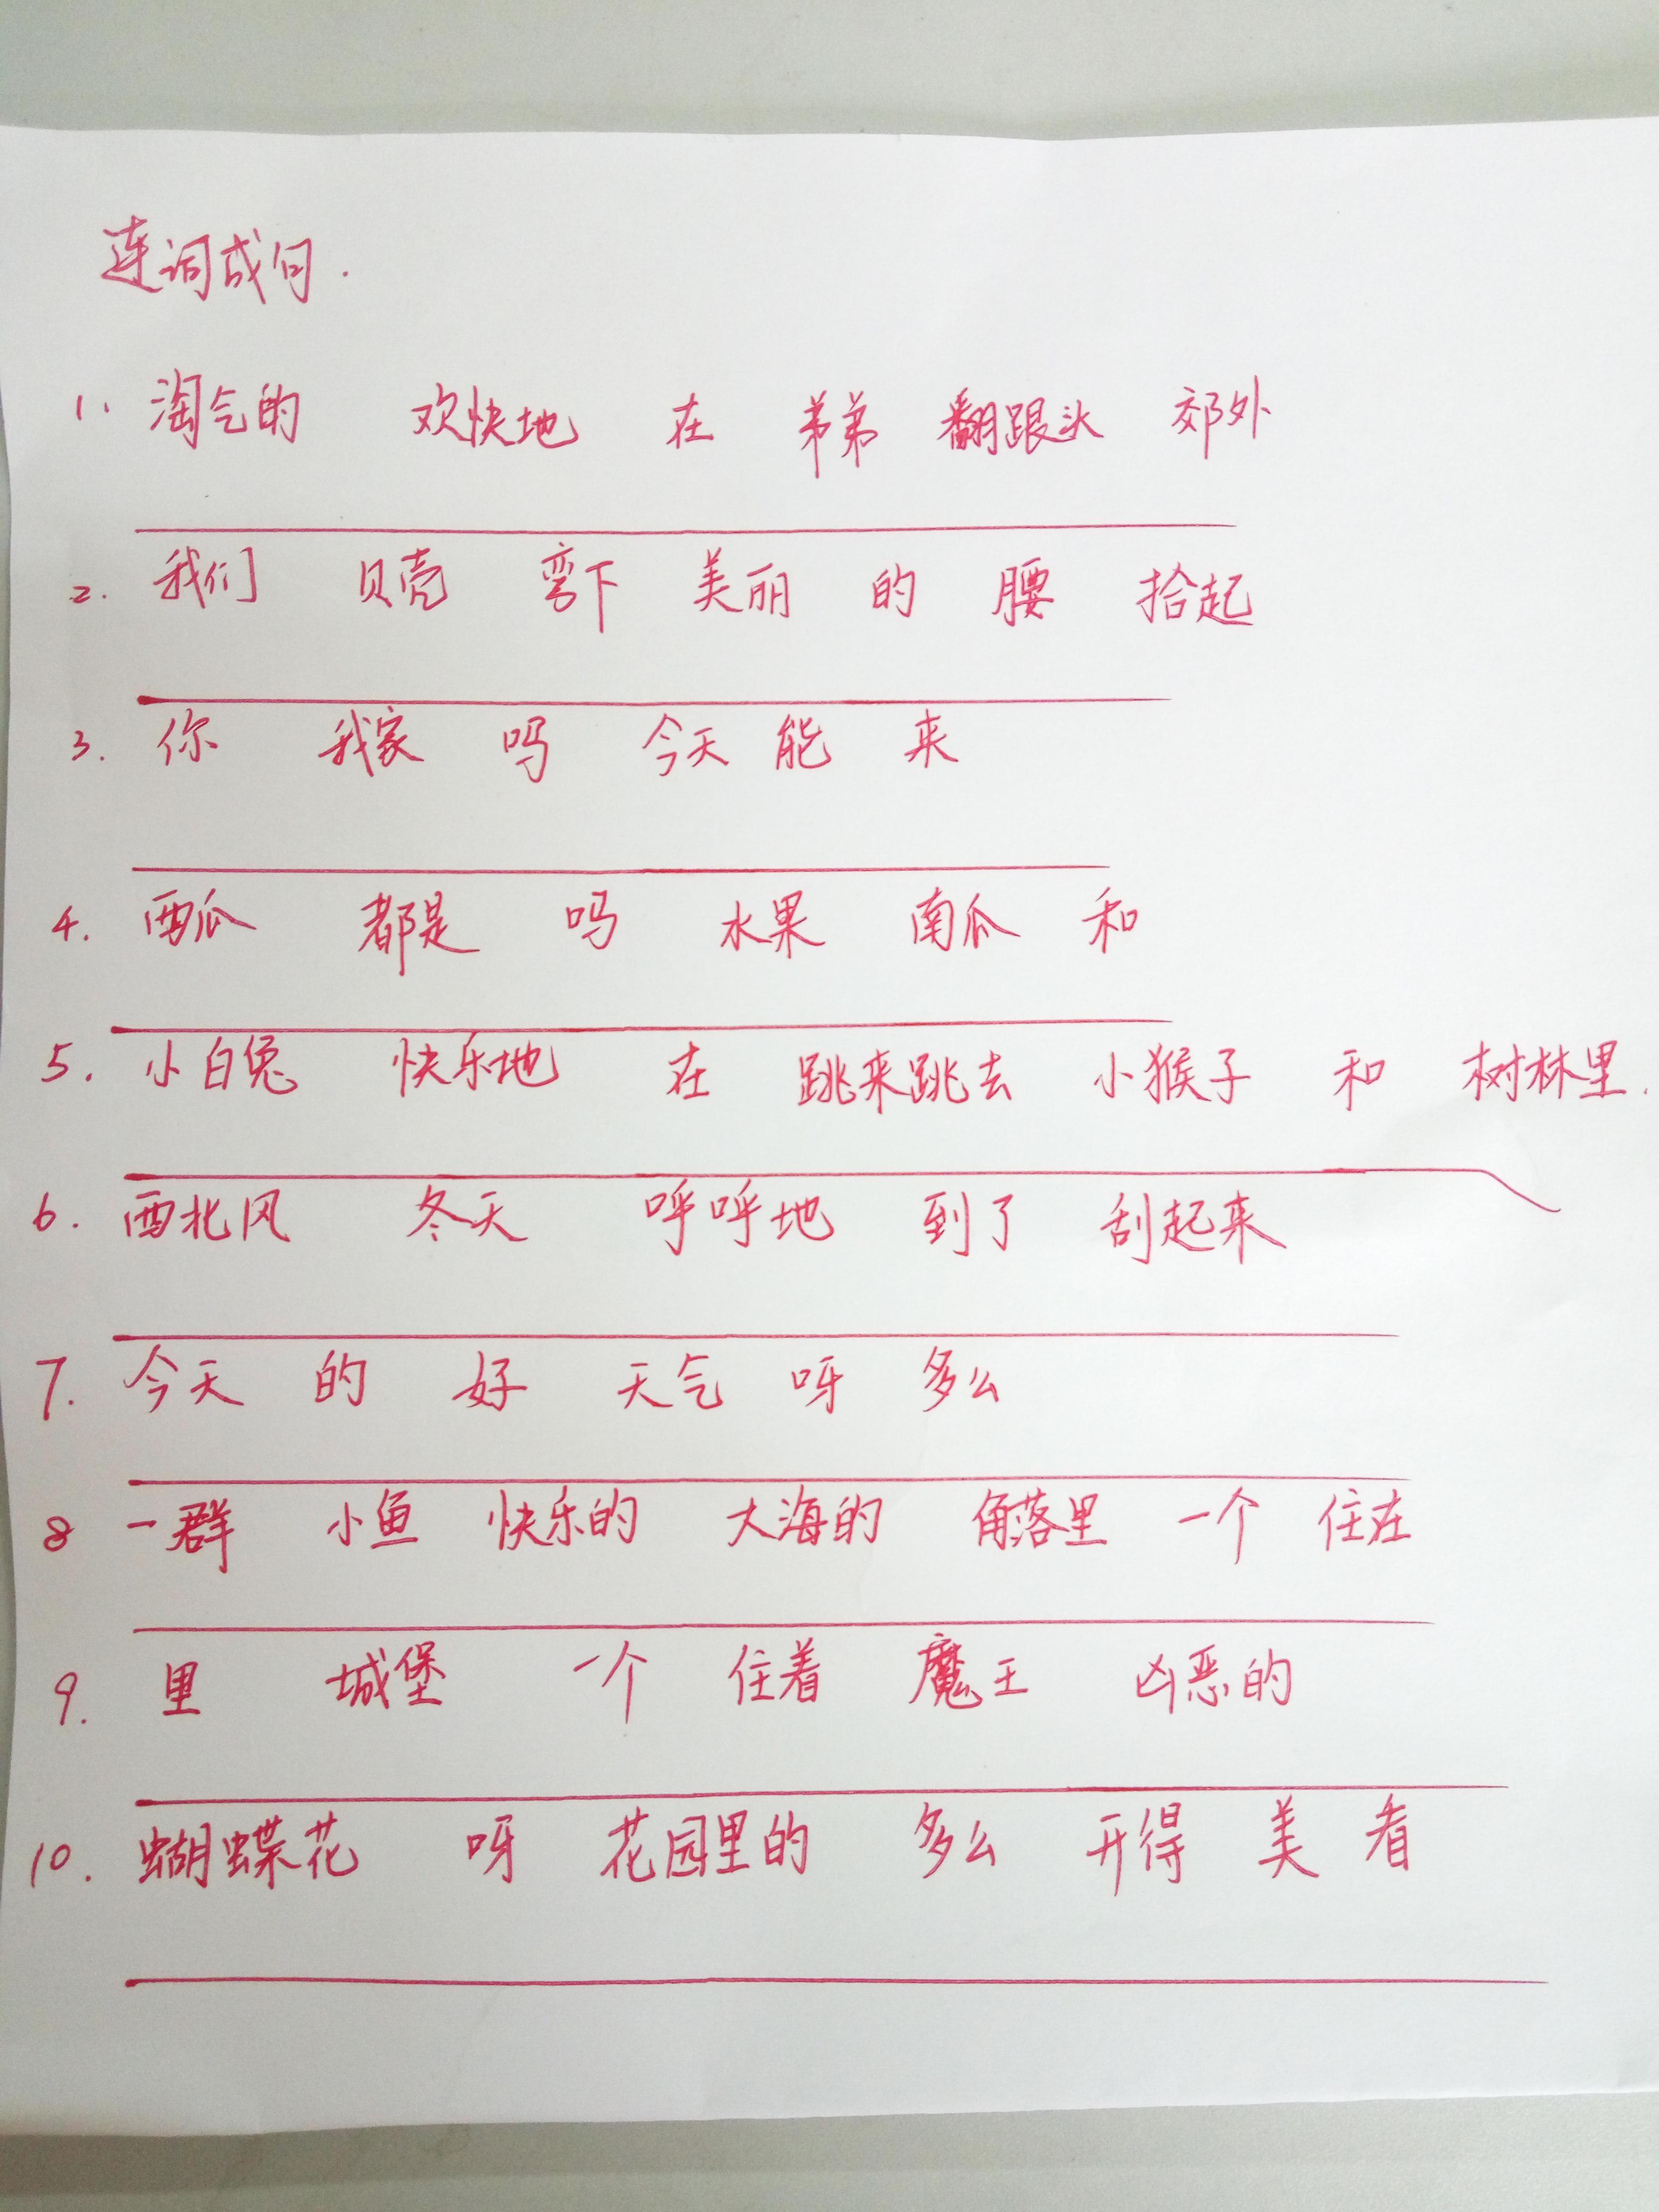 连词成句.
1. 淘气的 欢快地 在 弟弟 翻跟头 郊外
2. 我们 贝壳 弯下 美丽 的 腰 拾起
3. 你 我家 吗 今天 能 来
4. 西瓜 都是 吗 水果 南瓜 和
5. 小白兔 快乐地 在 跳来跳去 小猴子 和 树林里.
6. 西北风 冬天 呼呼地 到了 刮起来
7. 今天 的 好 天气 呀 多么
8 一群 小鱼 快乐的 大海的 角落里 一个 住在
9. 里 城堡 一个 住着 魔王 凶恶的
10. 蝴蝶花 呀 花园里的 多么 开得 美 看